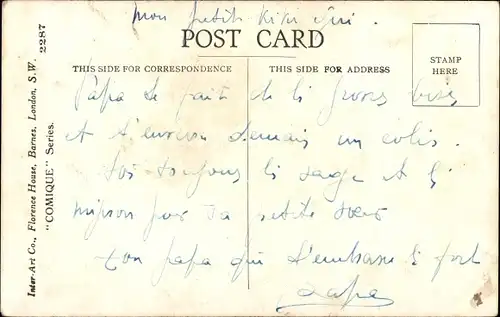 mon petit Kiki
POST CARD
THIS SIDE FOR CORRESPONDENCE
THIS SIDE FOR ADDRESS
STAMP
HERE
Papa te fait de
et t'envoie demain un colis.
Sois toujours sage et
mignon pour ta petite sœur
ton papa qui t'embrasse fort
Papa
Inter-Art Co., Florence House, Barnes, London, S.W.
"COMIQUE" Series.
2287